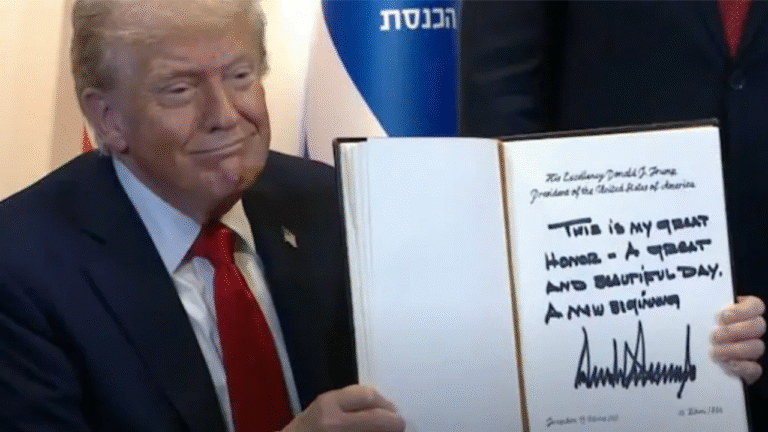 הכנסת
His Excellency Donald J. Trump
President of the United States of America
THIS IS MY GREAT
HONOR - A GREAT
AND BEAUTIFUL DAY.
A NEW BEGINNING